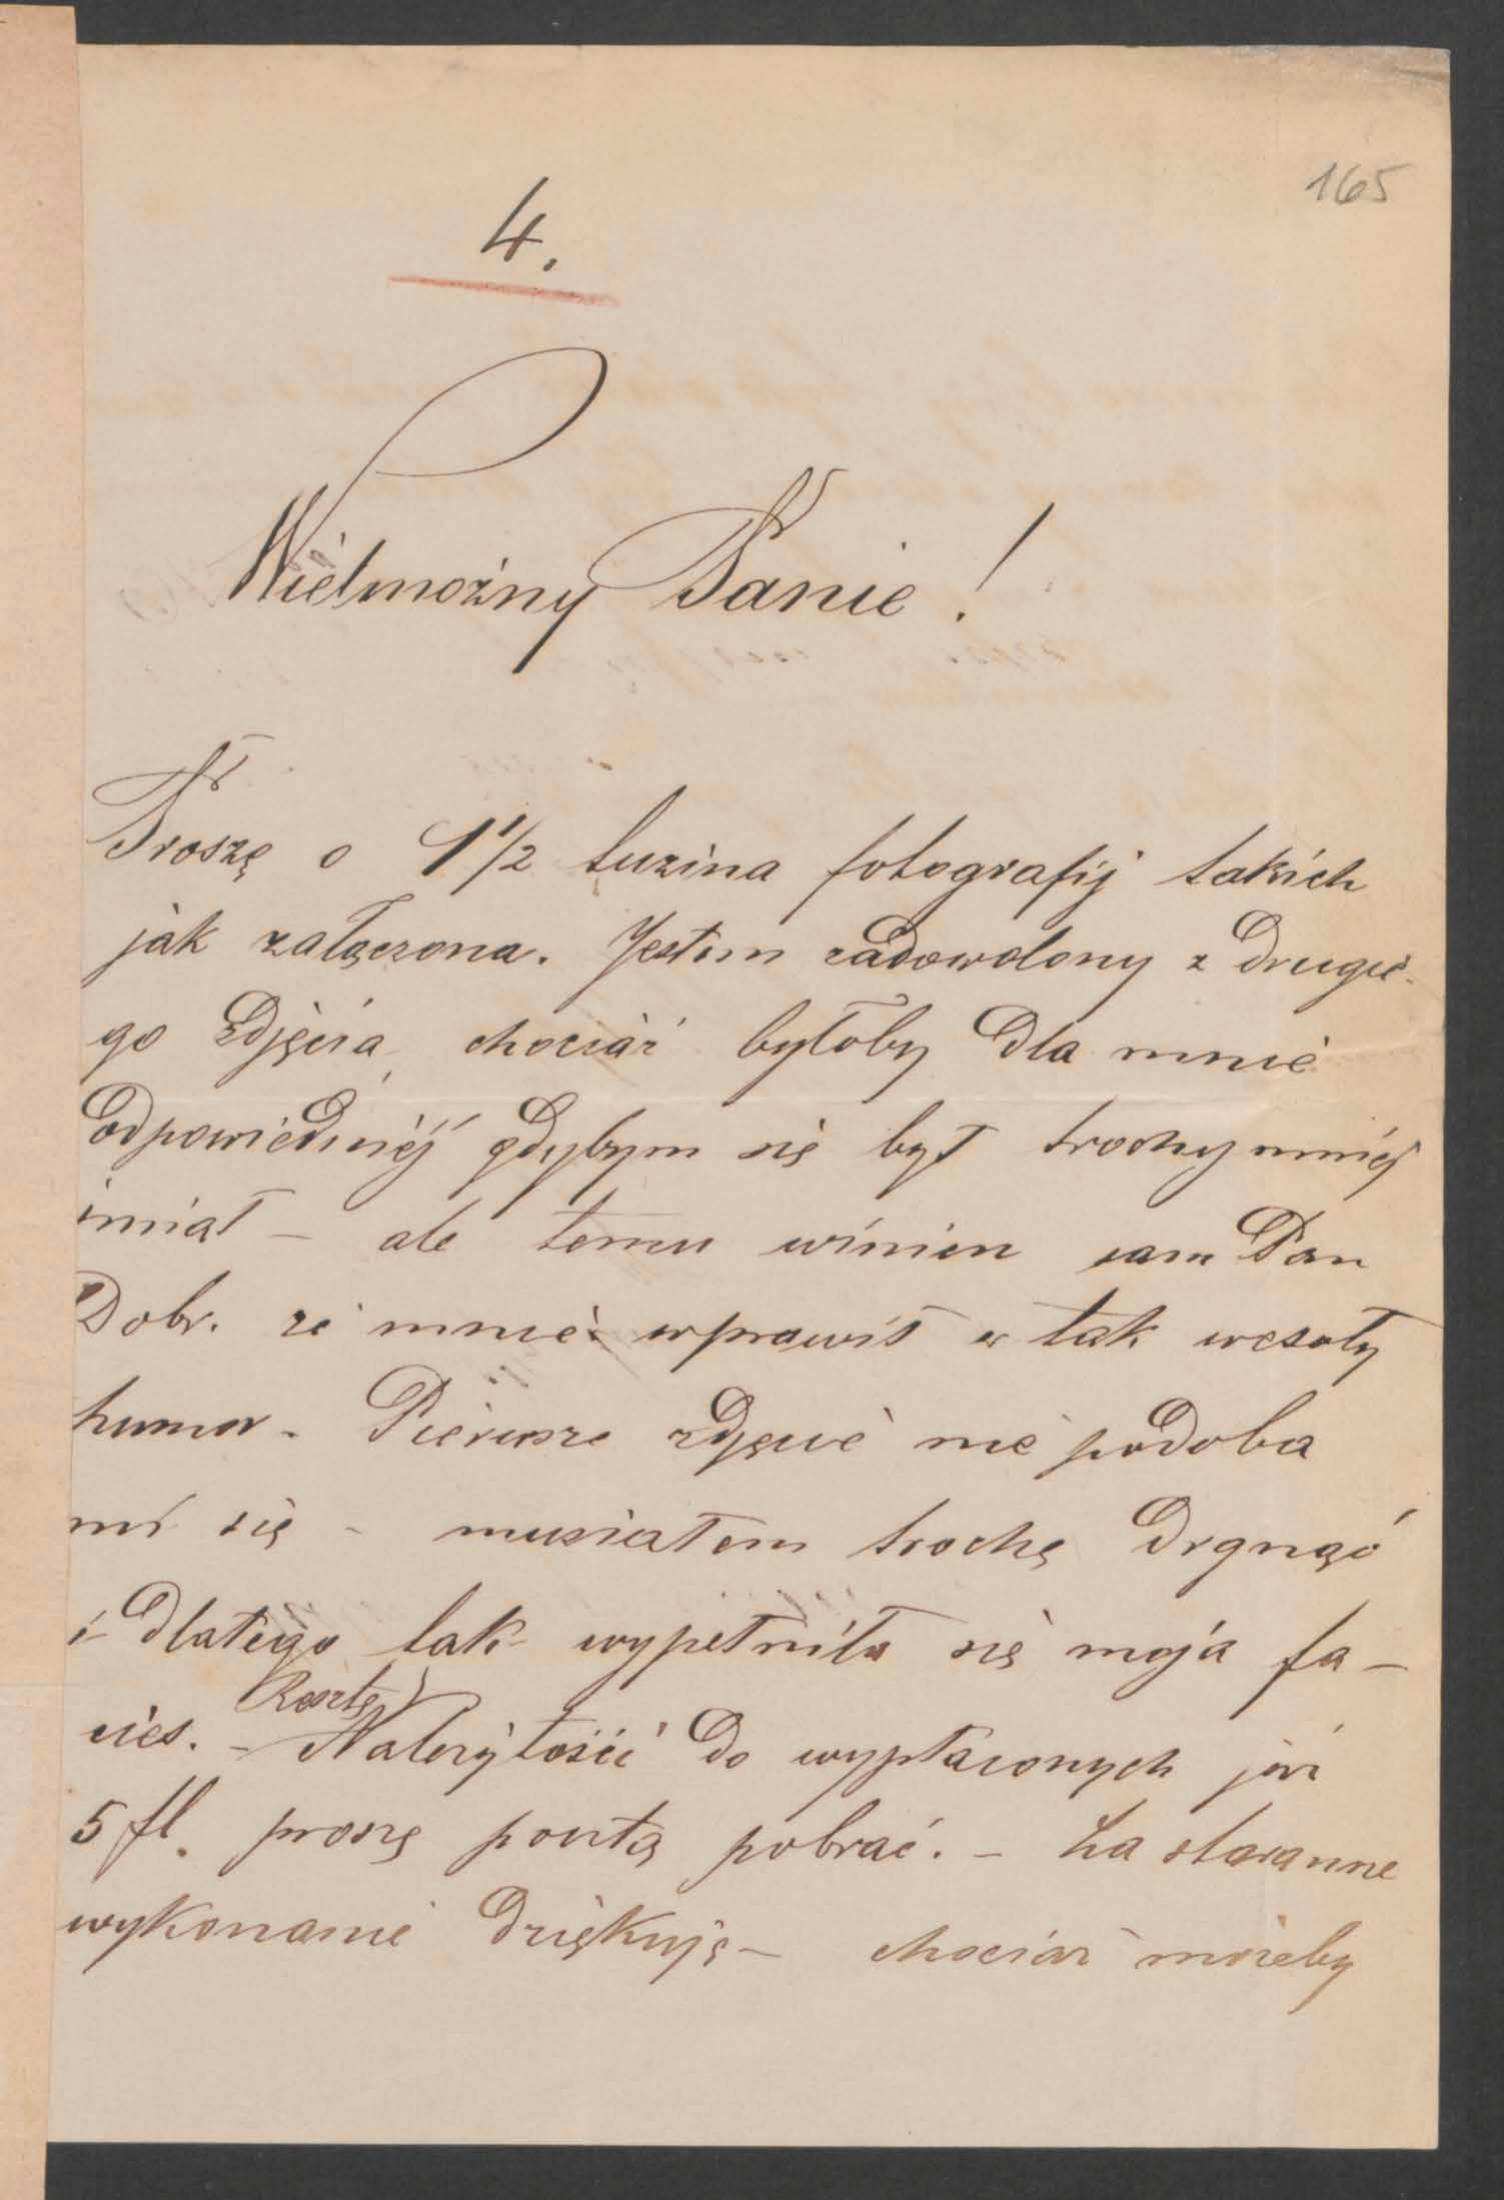 165
4.
Wielmożny Panie!
Proszę o 1 1/2 tuzina fotografij takich
jak załączona. Jestem zadowolony z drugie-
go zdjęcia, chociaż byłoby dla mnie
odpowiedniéj gdybym się był trochy mniéj
śmiał – ale temu winien sam Pan
Dobr. że mnie wprawił w tak wesoły
humor. Pierwsze zdjęcie nie podoba
mi się – musiałem trochę drgnąć
i dlatego tak wypełniła się moja fa-
cies. – Resztę Należytości do wypłaconych już
5 fl. proszę pocztą pobrać. – Za staranne
wykonanie dziękuję – chociaż możeby